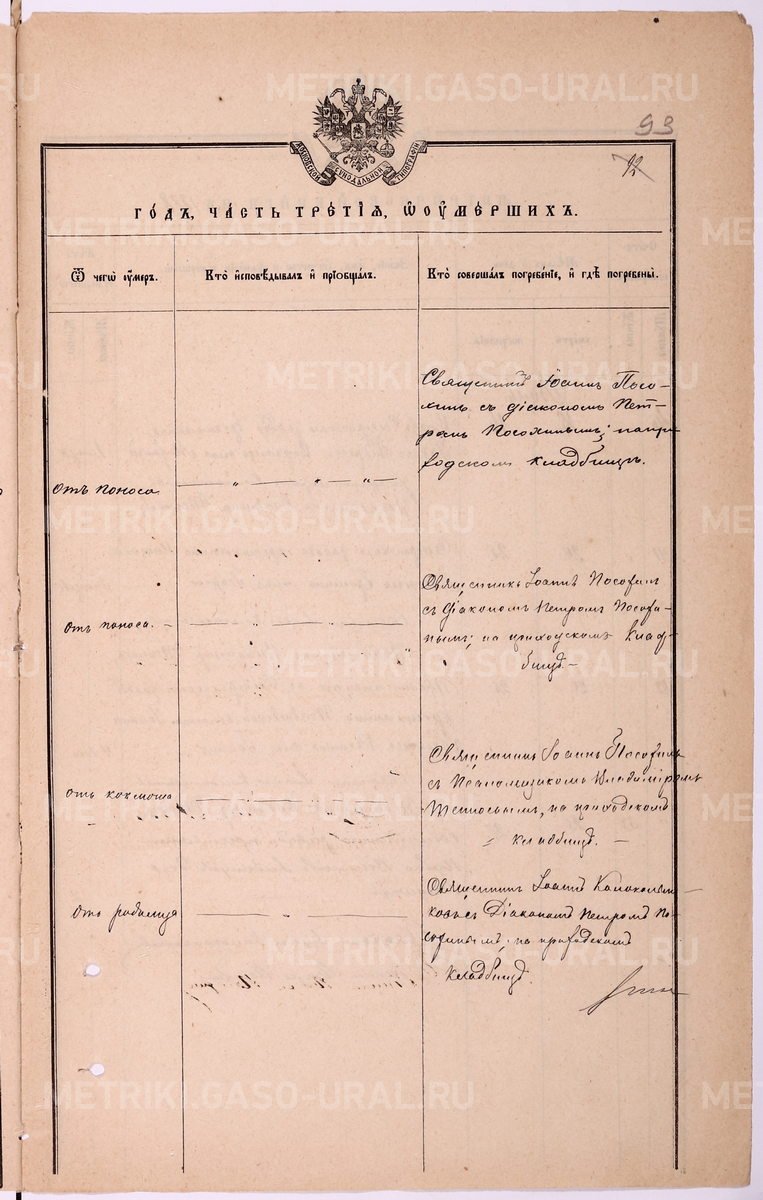 METRIKI.GASO-URAL.RU
93
92
МОСКОВСКОЙ СѴНОДАЛЬНОЙ ТИПОГРАФІИ
ГО́ДЪ, ЧА́СТЬ ТРЕ́ТІѦ, Ѡ҆ОУ҆МЕ́РШИХЪ.
Ѿ чегѡ̀ ᲂу҆́меръ.
Кто̀ и҆сповѣ́дывалъ и҆ прїѡбща́лъ.
Кто̀ соверша́лъ погребе́нїе, и҆ гдѣ̀ погребены̀.
Священникъ Іоаннъ Посо-
хинъ съ діакономъ Пет-
ромъ Посохинымъ; напри
ходскомъ кладбищѣ.
отъ поноса
Священникъ Іоаннъ Посохинъ
съ діакономъ Петромъ Посохи-
нымъ; на приходскомъ клад-
бищѣ.
отъ поноса.
Священникъ Іоаннъ Посохинъ
съ Псаломщикомъ Владиміромъ
на приходскомъ
кладбищѣ.
отъ кокмоша
Священникъ Іоаннъ Колокольни-
ковъ съ Діакономъ Петромъ По-
сохинымъ, на приходскомъ
кладбищѣ.
отъ родимца